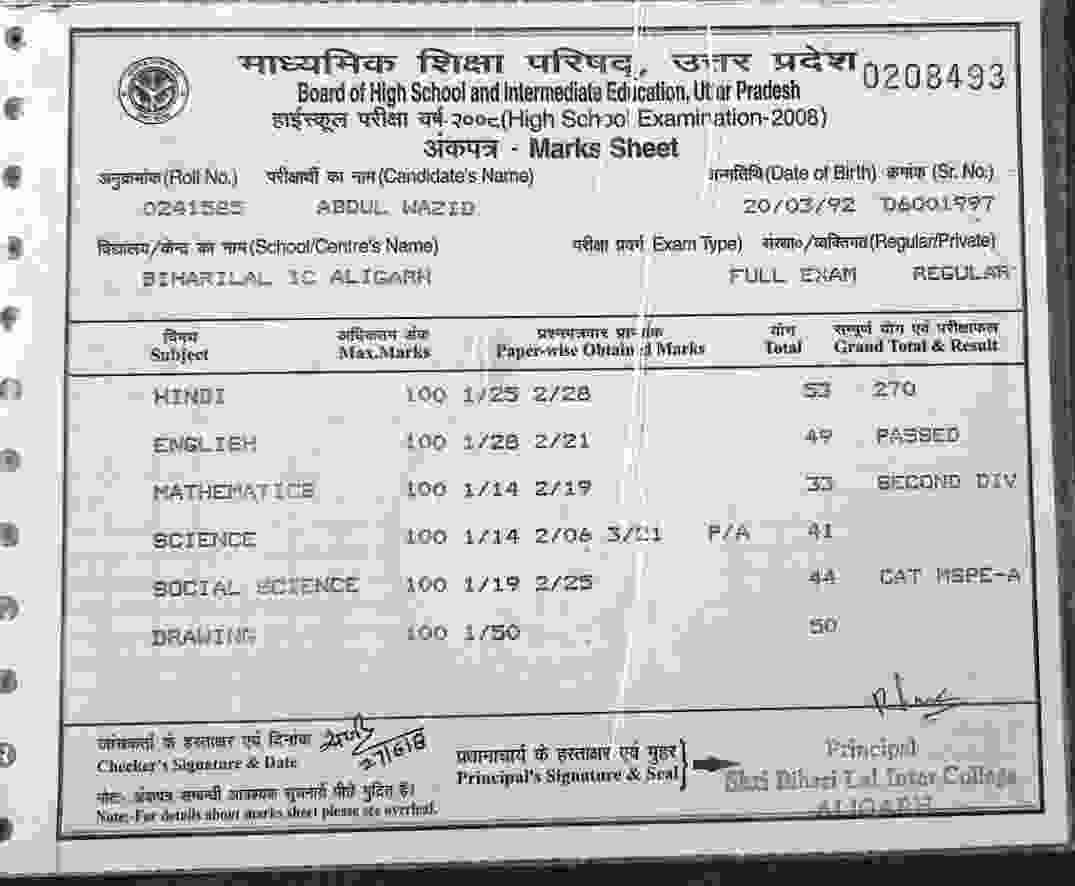 माध्यमिक शिक्षा परिषद, उत्तर प्रदेश 0208493
Board of High School and Intermediate Education, Uttar Pradesh
हाईस्कूल परीक्षा वर्ष-२००८(High School Examination-2008)
अंकपत्र - Marks Sheet
अनुक्रमांक (Roll No.) परीक्षार्थी का नाम (Candidate's Name) जन्मतिथि (Date of Birth) क्रमांक (Sr. No.)
0241525 ABDUL WAZID 20/03/92 D6001997
विद्यालय/केन्द्र का नाम (School/Centre's Name) परीक्षा प्रवर्ग Exam Type) संस्था०/व्यक्तिगत (Regular/Private)
BIHARILAL IC ALIGARH FULL EXAM REGULAR
विषय अधिकतम अंक प्रश्नपत्रवार प्राप्तांक योग सम्पूर्ण योग एवं परीक्षाफल
Subject Max.Marks Paper-wise Obtained Marks Total Grand Total & Result
HINDI 100 1/25 2/28 53 270
ENGLISH 100 1/28 2/21 49 PASSED
MATHEMATICS 100 1/14 2/19 33 SECOND DIV
SCIENCE 100 1/14 2/06 3/21 P/A 41
SOCIAL SCIENCE 100 1/19 2/25 44 CAT MSPE-A
DRAWING 100 1/50 50
जांचकर्ता के हस्ताक्षर एवं दिनांक 27/6/8
Checker's Signature & Date
प्रधानाचार्य के हस्ताक्षर एवं मुहर
Principal's Signature & Seal
Principal
Shri Bihari Lal Inter College
ALIGARH
नोट:- अंकपत्र सम्बन्धी आवश्यक सूचनायें पीछे मुद्रित हैं।
Note:-For details about marks sheet please see overleaf.